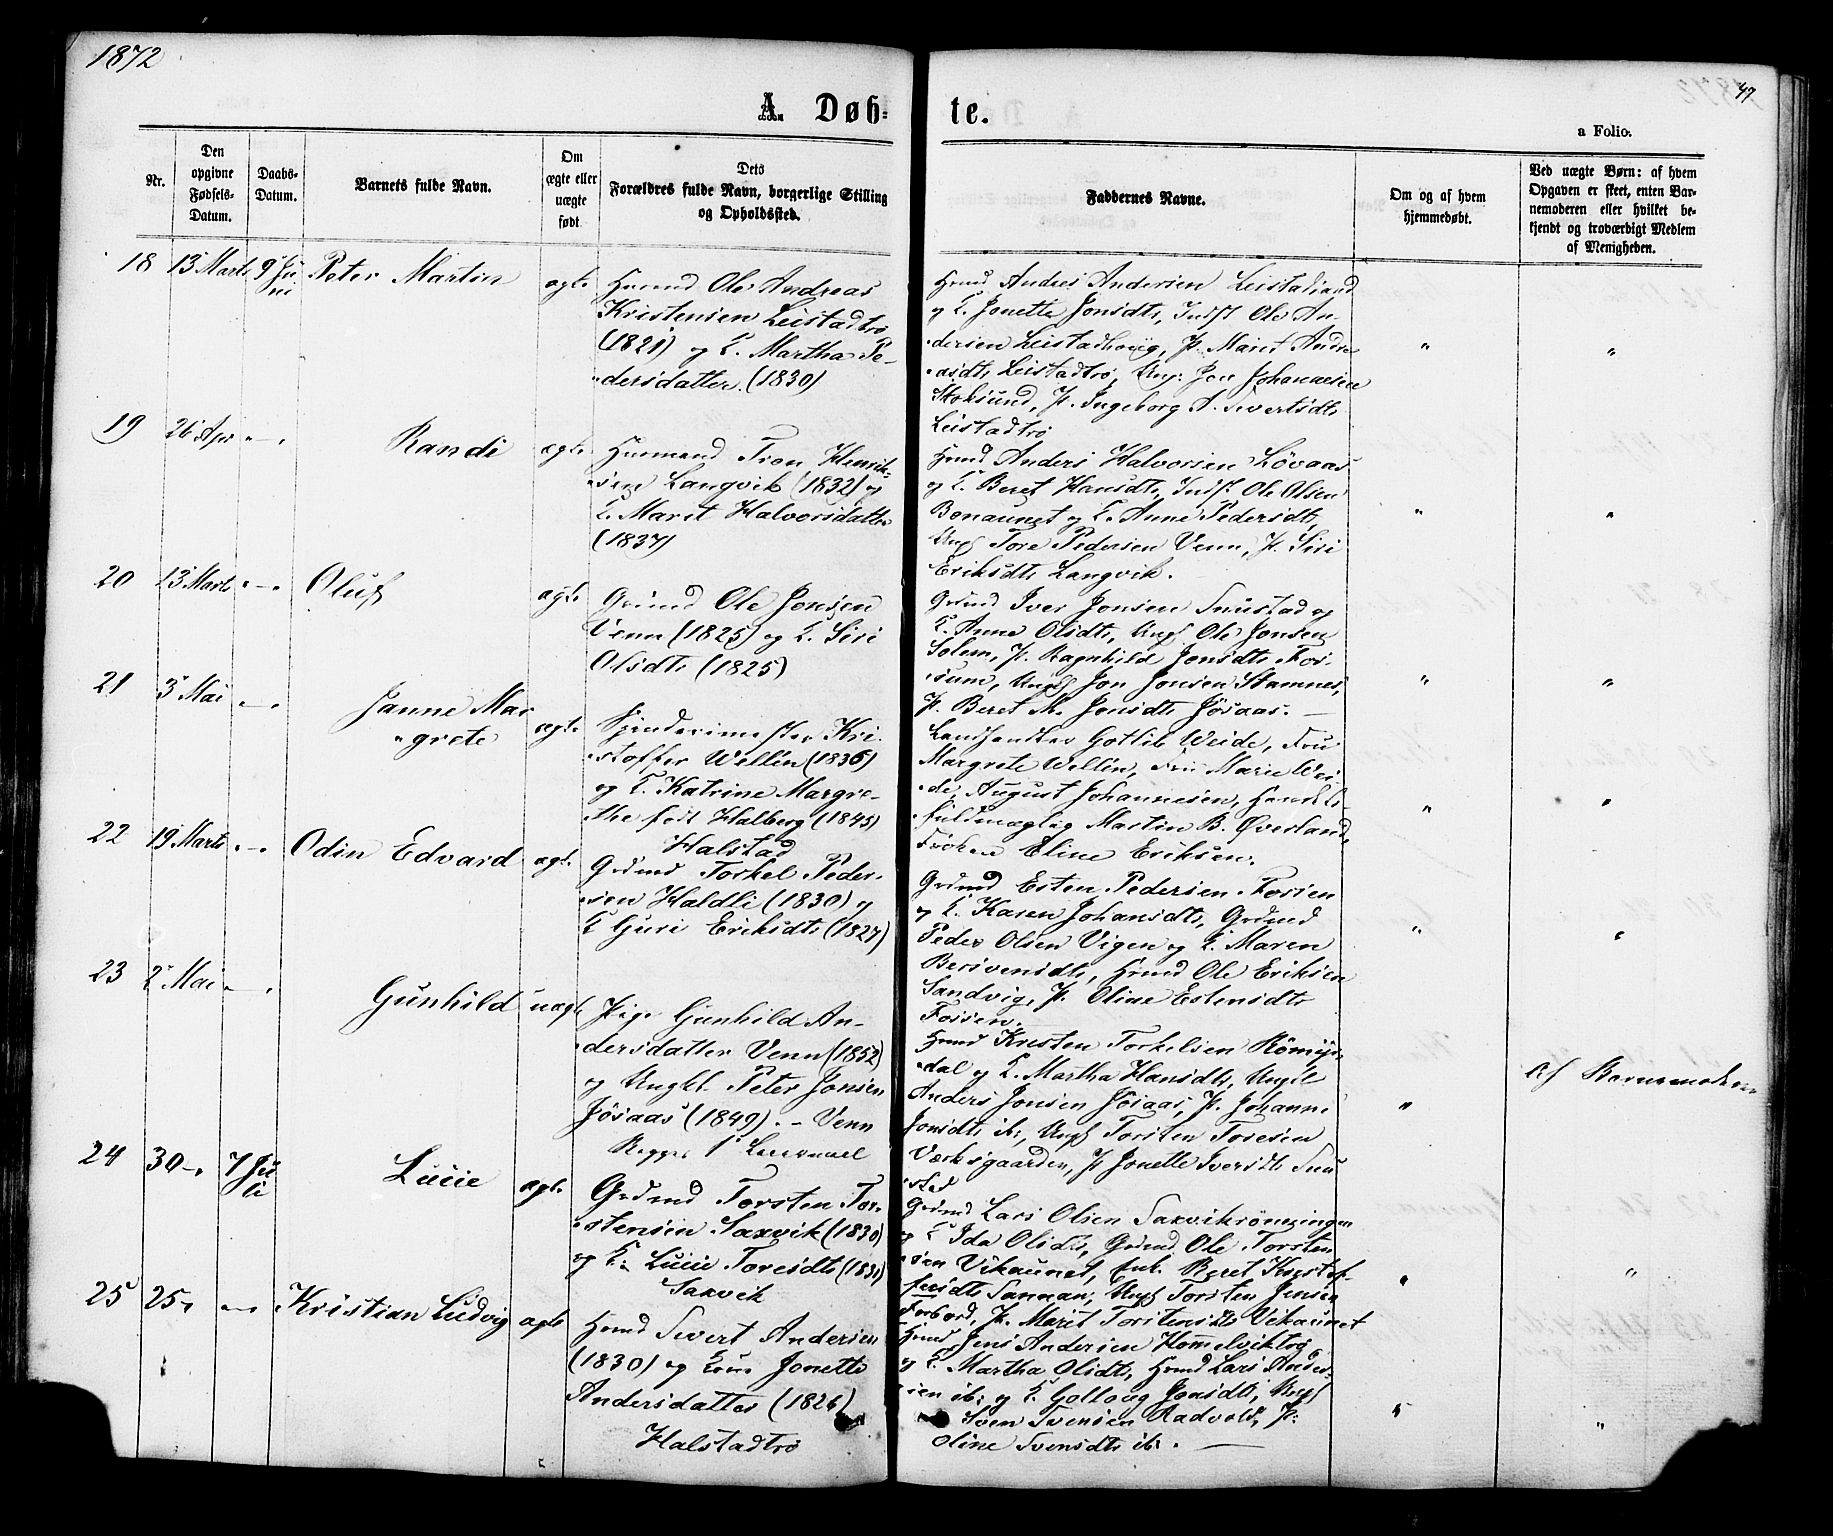 1872
47
A. Døb-
te.
a Folio.
Nr.
Den opgivne Fødsels-Datum.
Daabs-Datum.
Barnets fulde Navn.
Om ægte eller uægte født.
Dets Forældres fulde Navn, borgerlige Stilling og Opholdssted.
Faddernes Navne.
Om og af hvem hjemmedøbt.
Ved uægte Børn: af hvem Opgaven er skeet, enten Barnemoderen eller hvilket bekjendt og troværdigt Medlem af Menigheden.
18 13 Marts 9 Juni Peter Martin ægte
Husmd Ole Andreas
Kristensen Leistadtrø
(1821) og K. Martha Pe-
dersdatter. (1830)
Hmd Anders Andersen Leistadsand
og K. Jonetta Jonsdtr, Indst Ole An-
dersen Leistadhoug, P. Marit Andre-
asdtr Leistadtrø, Ungk Jon Johannesen
Stoksund, P. Ingeborg A. Sivertsdtr
Leistadtrø
" "
19 26 Apr "—" Randi ægte
Husmand Tron Henrik-
sen Langvik (1832) og
K. Marit Halvorsdatter
(1837)
Hmd Anders Halvorsen Løvaas
og K. Beret Hansdtr, Indst Ole Olsen
Bonaunet og K. Anne Pedersdtr,
Ungk Tore Pedersen Venn, P. Siri
Eriksdtr Langvik.
" "
20 13 Marts "—" Oluf ægte
Grdmd Ole Jonsen
Venn (1825) og K. Siri
Olsdtr (1825)
Grdmd Iver Jonsen Snustad og
K. Anne Olsdtr, Ungk Ole Jonsen
Solem, P. Ragnhild Jonsdtr Fos-
sum, Ungk Jon Jonsen Stamnes,
P. Beret M. Jonsdtr Jøsaas. —
" "
21 3 Mai "—" Janne Mar-
grete ægte
Kri-
stoffer Wellin (1836)
og K. Katrine Margre-
the født Halberg (1845)
Halstad
Landhandler Gotlib Weide, Fru
Margrete Wellin, Fru Marie Wei-
de, August Johannesen, Handels-
fuldmægtig Martin B. Øverland,
Frøken Eline Eriksen.
" "
22 19 Marts "—" Odin Edvard ægte
Grdmd Torkel Peder-
sen Haldli (1830) og
K Guri Eriksdtr (1827)
Grdmd Esten Pedersen Fossen
og K. Karen Johansdtr, Grdmd
Peder Olsen Vigen og K. Maren
Bersvensdtr, Hmd Ole Eriksen
Sandvig, P. Oline Estensdtr
Fossen.
" "
23 2 Mai "—" Gunhild uægte
Pige Gunhild An-
dersdatter Venn (1852)
og Ungkl Peter Jonsen
Jøsaas (1849). – Venn
Hmd Kristen Torkelsen Rømys-
dal og K. Martha Hansdtr, Ungkl
Anders Jonsen Jøsaas, P. Johanna
Jonsdtr ib:, Ungk Torsten Toresen
Værksgaarden, P Jonette Iversdtr Snu-
stad
" Af Barnemoderen
24 30 —" 7 Juli Lucie ægte
Grdmd Torsten Tor-
stensen Saxvik (1830)
og K: Lucie Toresdtr (1831)
Saxvik
Grdmd Lars Olsen Saxvikrønningen
og K Ida Olsdtr, Grdmd Ole Torsten
sen Vikaunet, Enk. Beret Kristof-
fersdtr Sannan, Ungk Torsten Jensen
Forbord, P. Marit Torstensdtr Vikaunet
" "
25 25 " "—" Kristian Ludvig ægte
Hmd Sivert Andersen
(1830) og Kone Jonetta
Andersdatter (1826)
Halstadtrø
Hmd Jens Andersen Hommelviktrø
og K. Martha Olsdtr, Hmd Lars Ander-
sen ib: og K. Gollaug Jonsdtr, Ungk
Sven Svensen Aadvold, P:
Oline Svensdtr ib:. —
" "